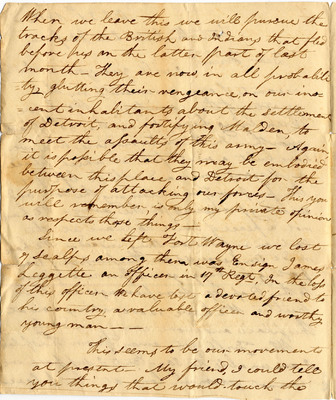 When we leave this we will pursue the
tracks of the British and Indians that fled
before us on the latter part of last
month – They are now in all probabili-
ty, glutting their vengeance on our inno
cent inhabitants about the settlement
of Detroit, and fortifying Malden, to
meet the assaults of this army – Again
it is possible that they may be embodied
between this place, and Detroit for the
purpose of attacking our forces – This you
will remember is only my private opinion
as respects those things –
Since we left Fort Wayne we lost
7 scalps among them was Ensign James
Leggette an Officer in 17th Regt. In the loss
of this officer we have lost a devoted friend to
his country, a valuable officer and worthy
young man – –
This seems to be our movements
at present – My friend, I could tell
you things that would touch the